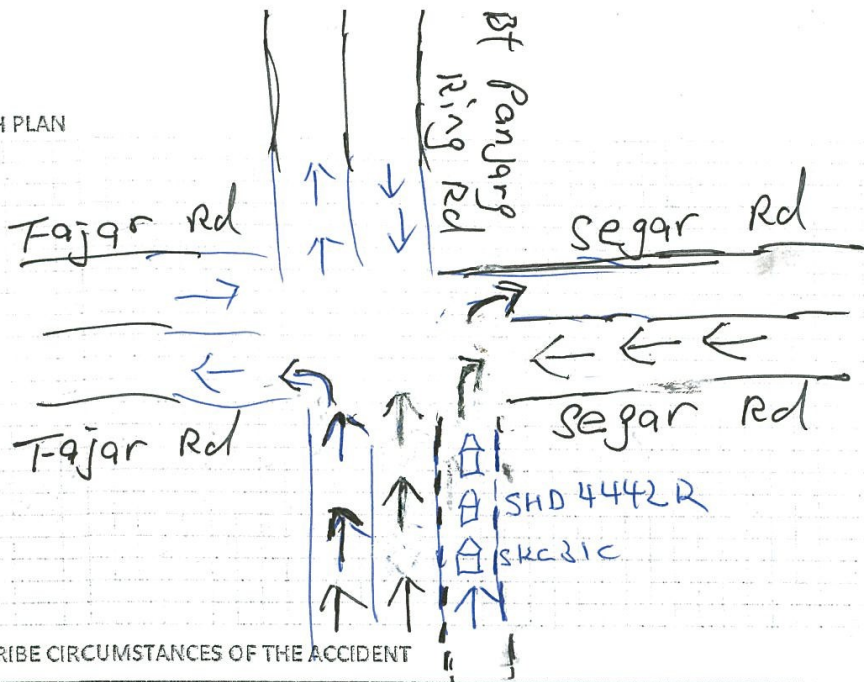 H PLAN
Bt Panjang
Ring Rd
Fajar Rd
Segar Rd
Fajar Rd
Segar Rd
SHD 4442R
SKC31C
RIBE CIRCUMSTANCES OF THE ACCIDENT